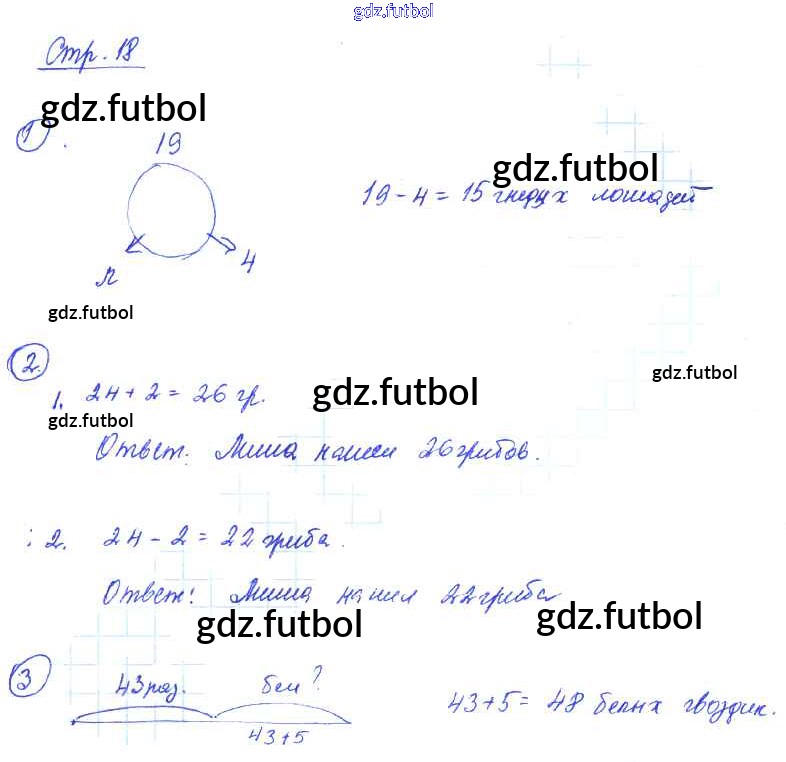 gdz.futbol
Стр. 18
gdz.futbol
1.
19
gdz.futbol
19 - 4 = 15 гнедых лошадей
4
gdz.futbol
2.
gdz.futbol
1. 24 + 2 = 26 гр.
gdz.futbol
gdz.futbol
Ответ: Миша нашел 26 грибов.
2. 24 - 2 = 22 гриба.
Ответ: Миша нашел 22 гриба
gdz.futbol
gdz.futbol
3
43 роз. бел ?
43+5
43+5 = 48 белых гвоздик.